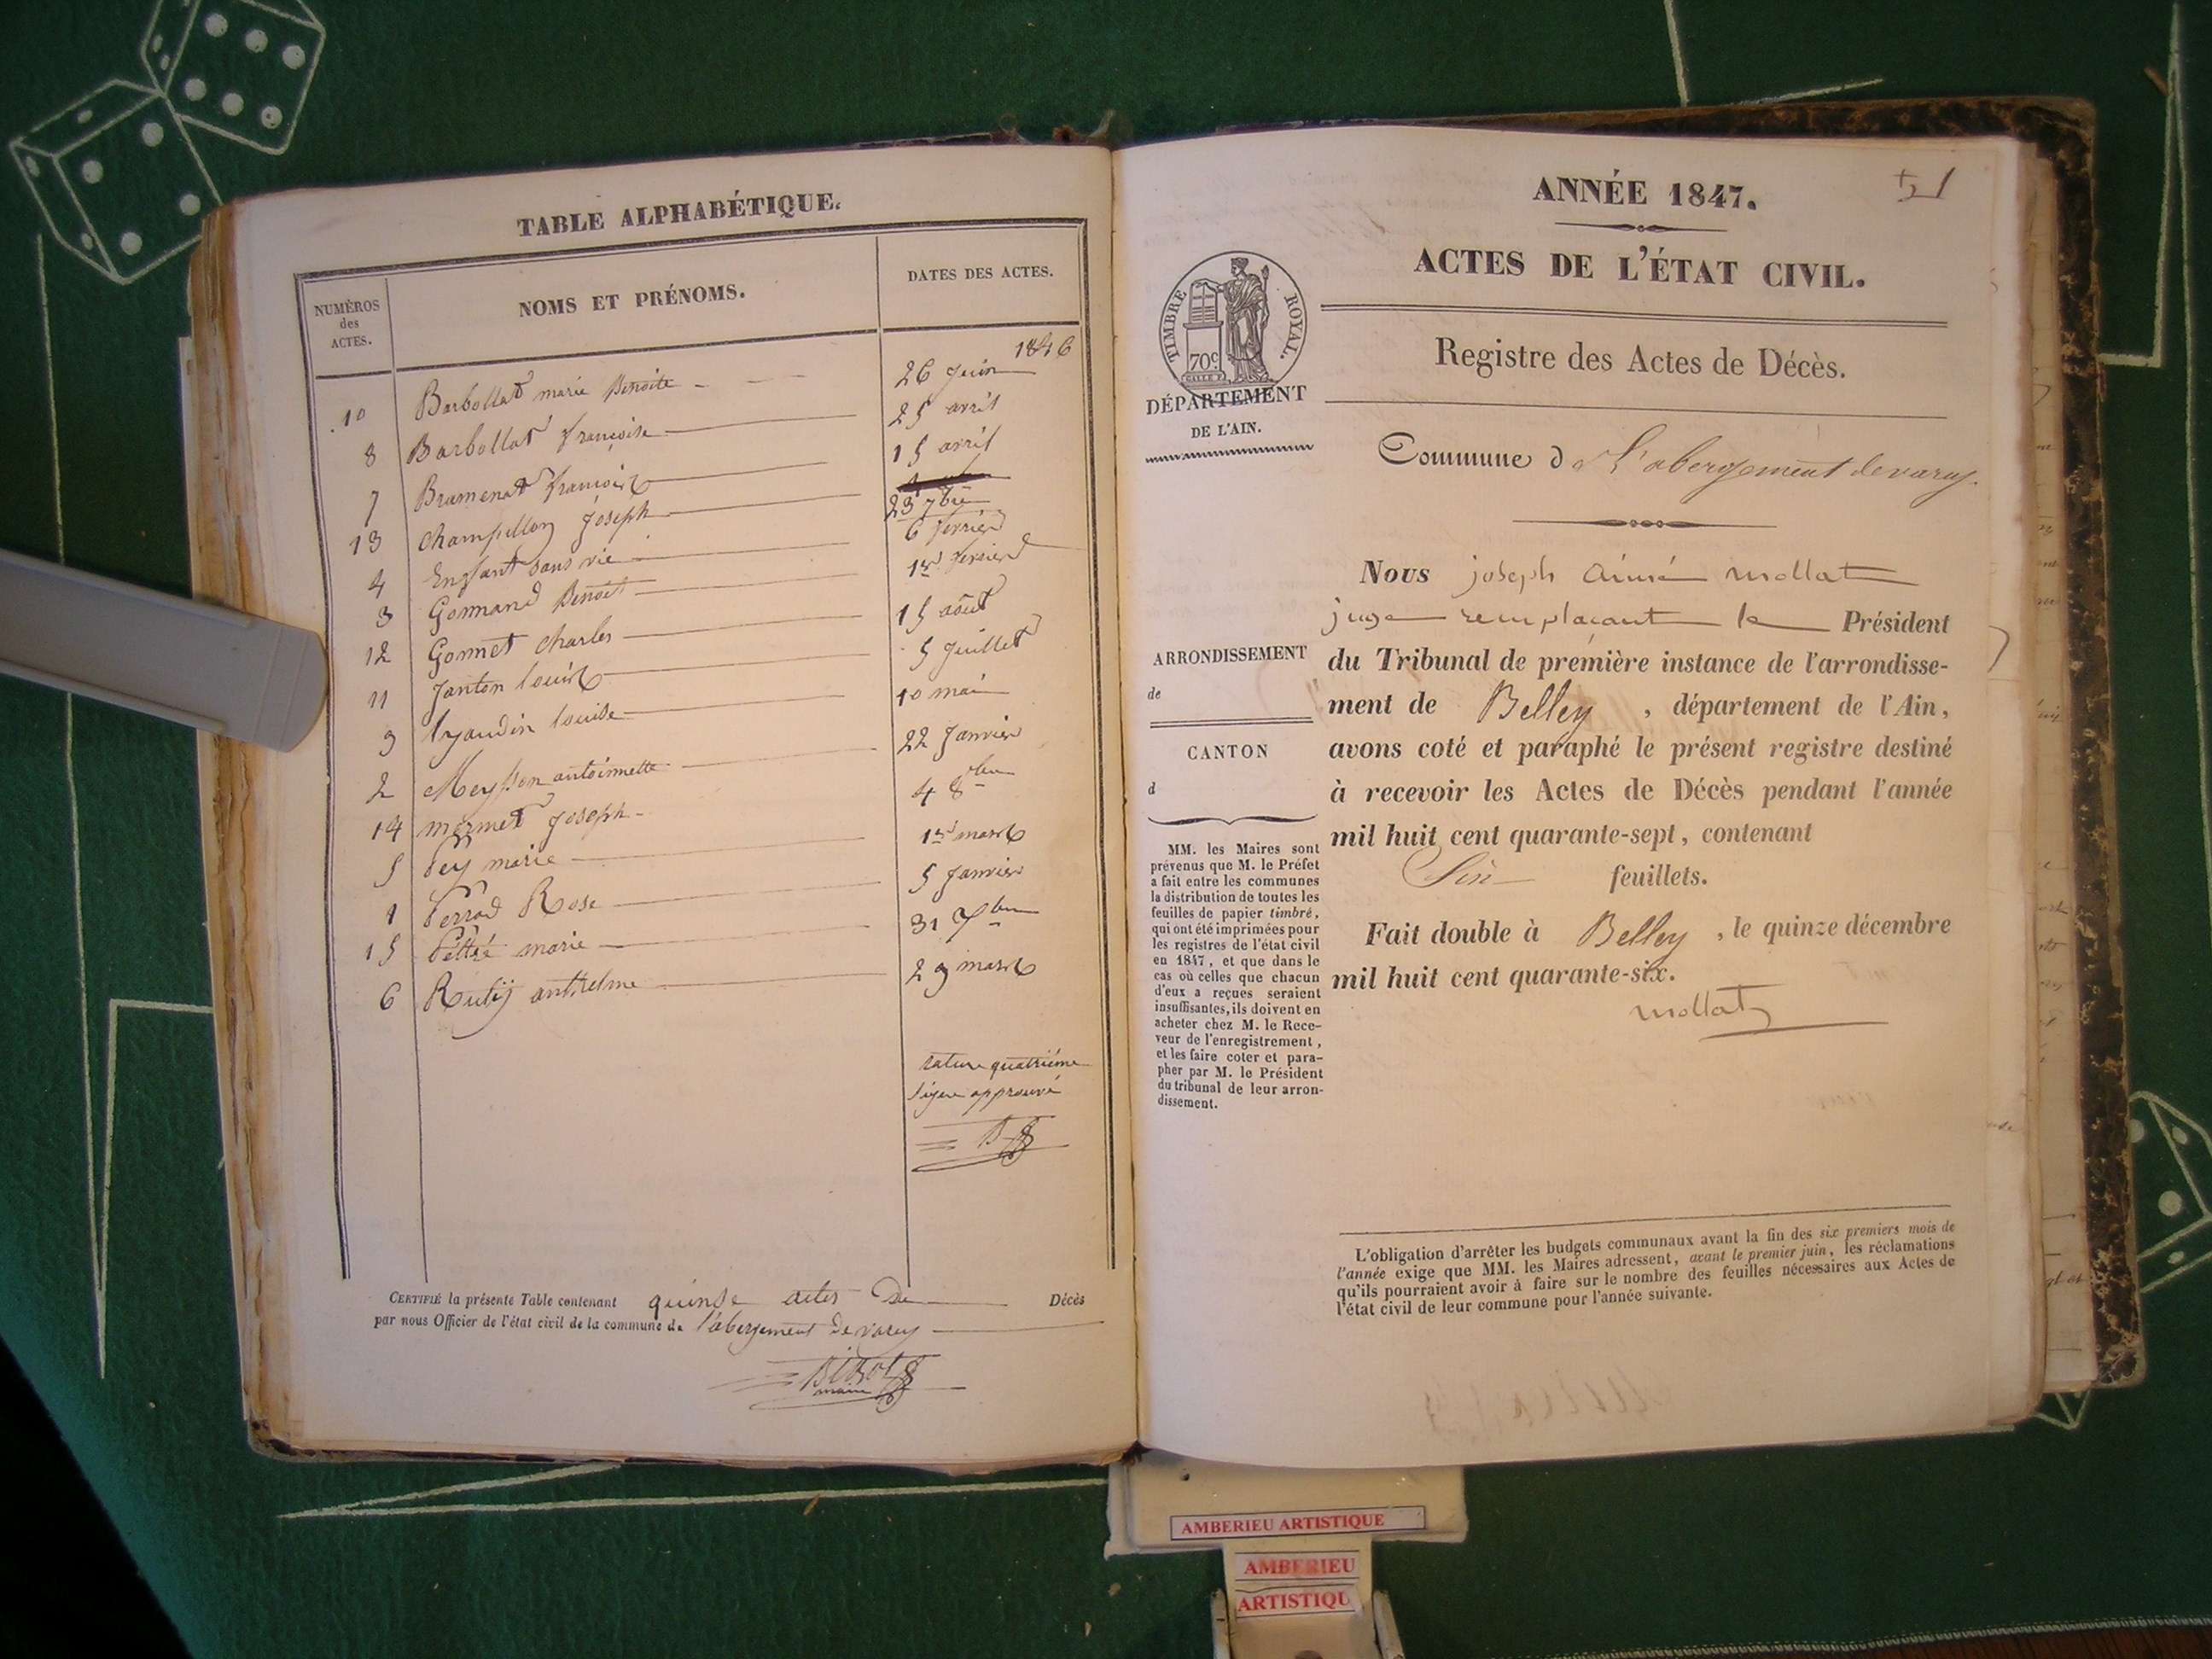 TABLE ALPHABÉTIQUE.
NUMÉROS
des
ACTES.
NOMS ET PRÉNOMS.
DATES DES ACTES.
1846
10 Barbollat marie Benoite 26 Juin
8 Barbollat françoise 25 avril
7 Bramenat françois 15 avril
13 Champillon Joseph 23 7bre
4 Enfant sans vie 6 fevrier
3 Gonnand Benoit 1er fevrier
12 Gonnet Charles 15 août
11 Janton Louis 5 Juillet
9 Louise 10 mai
2 Meysson antoinette 22 Janvier
14 mermet Joseph 4 8bre
5 Pey marie 1er mars
1 Perrod Rose 5 Janvier
15 marie 31 Xbre
6 anthelme 29 mars
rature quatrième
ligne approuvé
CERTIFIÉ la présente Table contenant quinse actes De Décès
par nous Officier de l'état civil de la commune de l'abergement de varey
maire
51
ANNÉE 1847.
ACTES DE L'ÉTAT CIVIL.
TIMBRE ROYAL.
70c
Registre des Actes de Décès.
DÉPARTEMENT
DE L'AIN.
Commune d L'abergement de varey.
Nous joseph Aimé mollat
juge remplaçant le Président
du Tribunal de première instance de l'arrondisse-
ment de Belley, département de l'Ain,
avons coté et paraphé le présent registre destiné
à recevoir les Actes de Décès pendant l'année
mil huit cent quarante-sept, contenant
Six feuillets.
Fait double à Belley, le quinze décembre
mil huit cent quarante-six.
mollat
ARRONDISSEMENT
de
CANTON
d
MM. les Maires sont
prévenus que M. le Préfet
a fait entre les communes
la distribution de toutes les
feuilles de papier timbré,
qui ont été imprimées pour
les registres de l'état civil
en 1847, et que dans le
cas où celles que chacun
d'eux a reçues seraient
insuffisantes, ils doivent en
acheter chez M. le Rece-
veur de l'enregistrement,
et les faire coter et para-
pher par M. le Président
du tribunal de leur arron-
dissement.
L'obligation d'arrêter les budgets communaux avant la fin des six premiers mois de
l'année exige que MM. les Maires adressent, avant le premier juin, les réclamations
qu'ils pourraient avoir à faire sur le nombre des feuilles nécessaires aux Actes de
l'état civil de leur commune pour l'année suivante.
AMBERIEU ARTISTIQUE
AMBERIEU
ARTISTIQU